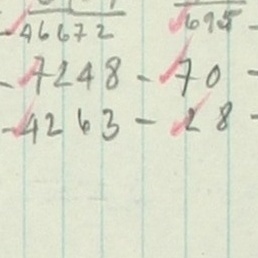 46672 695
- 7248 - 70 -
- 4263 - 28 -